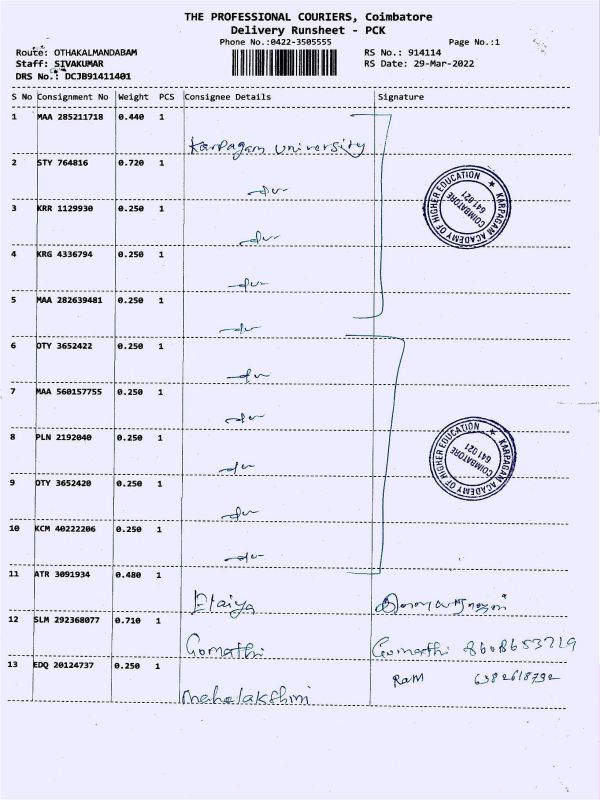 THE PROFESSIONAL COURIERS, Coimbatore
Delivery Runsheet - PCK
Phone No.:0422-3505555
Page No.:1
Route: OTHAKALMANDABAM
RS No.: 914114
Staff: SIVAKUMAR
RS Date: 29-Mar-2022
DRS No.: DCJB91411401
S No Consignment No Weight PCS Consignee Details Signature
1 MAA 285211718 0.440 1
Karpagam University
2 STY 764816 0.720 1
3 KRR 1129930 0.250 1
4 KRG 4336794 0.250 1
5 MAA 282639481 0.250 1
6 OTY 3652422 0.250 1
7 MAA 560157755 0.250 1
8 PLN 2192040 0.250 1
9 OTY 3652420 0.250 1
10 KCM 40222206 0.250 1
11 ATR 3091934 0.480 1
Elaiya
12 SLM 292368077 0.710 1
Gomathi Gomathi 8608653729
13 EDQ 20124737 0.250 1
Ram 6382618792
Mahalakshmi
KARPAGAM ACADEMY OF HIGHER EDUCATION
COIMBATORE
641 021
KARPAGAM ACADEMY OF HIGHER EDUCATION
COIMBATORE
641 021